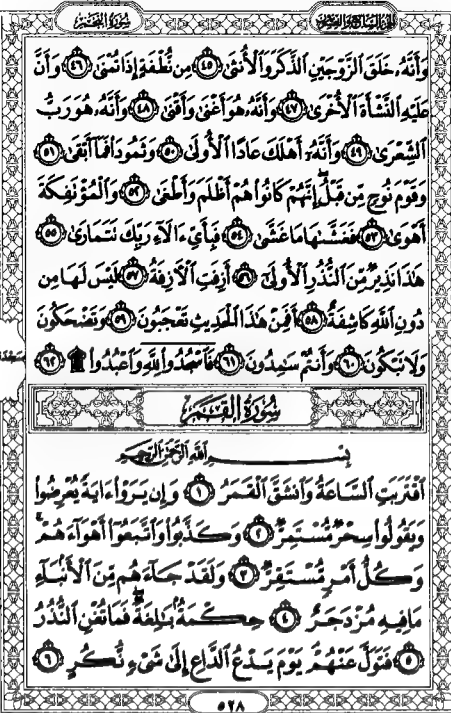 الجزء السابع والعشرون سورة القمر
وَأَنَّهُۥ خَلَقَ ٱلزَّوْجَيْنِ ٱلذَّكَرَ وَٱلْأُنثَىٰ ٤٥ مِن نُّطْفَةٍ إِذَا تُمْنَىٰ ٤٦ وَأَنَّ
عَلَيْهِ ٱلنَّشْأَةَ ٱلْأُخْرَىٰ ٤٧ وَأَنَّهُۥ هُوَ أَغْنَىٰ وَأَقْنَىٰ ٤٨ وَأَنَّهُۥ هُوَ رَبُّ
ٱلشِّعْرَىٰ ٤٩ وَأَنَّهُۥٓ أَهْلَكَ عَادًا ٱلْأُولَىٰ ٥٠ وَثَمُودَا۟ فَمَآ أَبْقَىٰ ٥١
وَقَوْمَ نُوحٍ مِّن قَبْلُ ۖ إِنَّهُمْ كَانُوا۟ هُمْ أَظْلَمَ وَأَطْغَىٰ ٥٢ وَٱلْمُؤْتَفِكَةَ
أَهْوَىٰ ٥٣ فَغَشَّىٰهَا مَا غَشَّىٰ ٥٤ فَبِأَىِّ ءَالَآءِ رَبِّكَ تَتَمَارَىٰ ٥٥
هَٰذَا نَذِيرٌ مِّنَ ٱلنُّذُرِ ٱلْأُولَىٰٓ ٥٦ أَزِفَتِ ٱلْءَازِفَةُ ٥٧ لَيْسَ لَهَا مِن
دُونِ ٱللَّهِ كَاشِفَةٌ ٥٨ أَفَمِنْ هَٰذَا ٱلْحَدِيثِ تَعْجَبُونَ ٥٩ وَتَضْحَكُونَ
وَلَا تَبْكُونَ ٦٠ وَأَنتُمْ سَٰمِدُونَ ٦١ فَٱسْجُدُوا۟ لِلَّهِ وَٱعْبُدُوا۟ ۩ ٦٢
سجدة
سُورَةُ القَمَرِ
بِسْمِ ٱللَّهِ ٱلرَّحْمَٰنِ ٱلرَّحِيمِ
ٱقْتَرَبَتِ ٱلسَّاعَةُ وَٱنشَقَّ ٱلْقَمَرُ ١ وَإِن يَرَوْا۟ ءَايَةً يُعْرِضُوا۟
وَيَقُولُوا۟ سِحْرٌ مُّسْتَمِرٌّ ٢ وَكَذَّبُوا۟ وَٱتَّبَعُوٓا۟ أَهْوَآءَهُمْ ۚ
وَكُلُّ أَمْرٍ مُّسْتَقِرٌّ ٣ وَلَقَدْ جَآءَهُم مِّنَ ٱلْأَنۢبَآءِ
مَا فِيهِ مُزْدَجَرٌ ٤ حِكْمَةٌۢ بَٰلِغَةٌ ۖ فَمَا تُغْنِ ٱلنُّذُرُ
٥ فَتَوَلَّ عَنْهُمْ ۘ يَوْمَ يَدْعُ ٱلدَّاعِ إِلَىٰ شَىْءٍ نُّكُرٍ ٦
٥٢٨